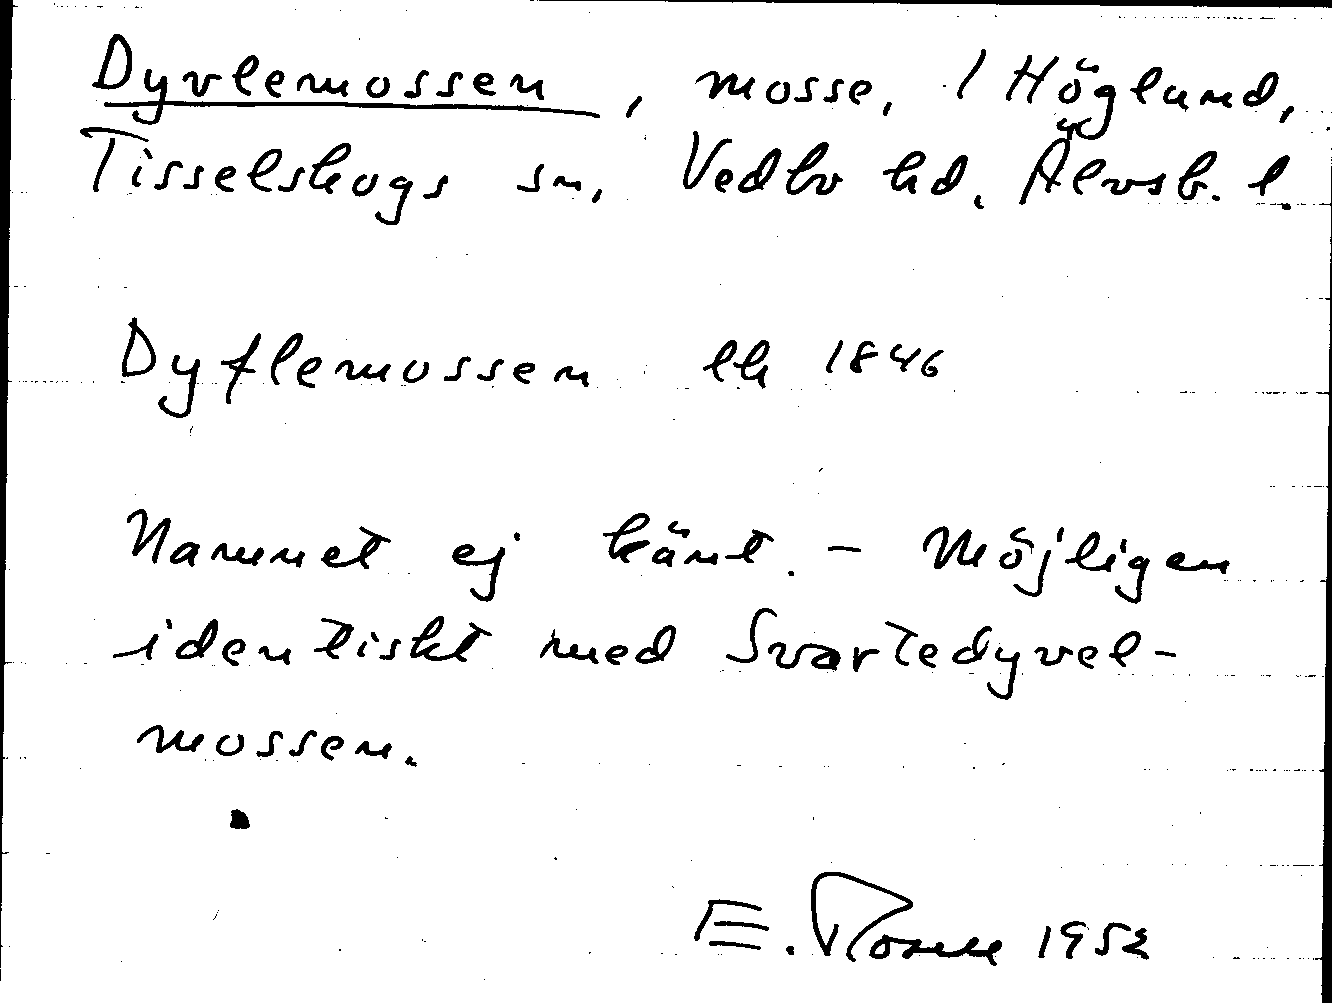 Dyvlemossen, mosse, 1 Höglund,
Tisselskogs sn, Vedbo hd. Älvsb. l.
Dyflemossen lk 1846
Namnet ej känt. – Möjligen
identiskt med Svartedyvel-
mossen.
E. 1952